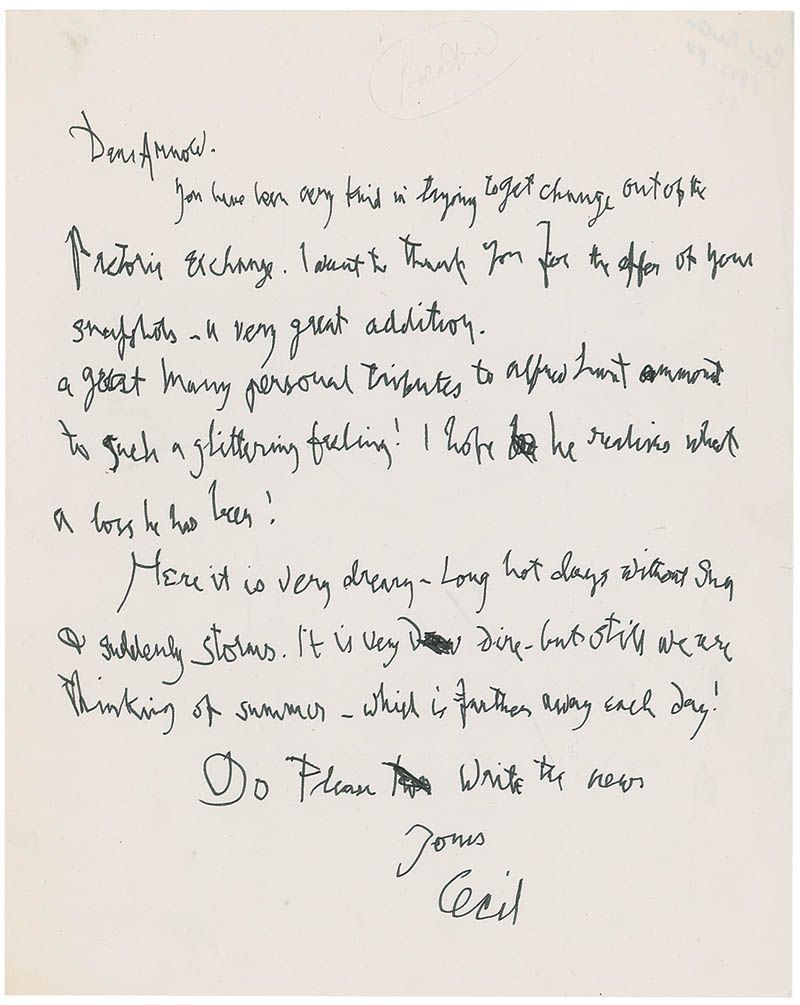 Beaton
Dear Arnold.
You have been very kind in trying to get change out of the
Pretoria exchange. I want to thank you for the offer of your
snapshots - a very great addition.
a great many personal tributes to alfred Lunt ammount
to such a glittering feeling! I hope he realises what
a loss he has been!
Here it is very dreary - Long hot days without Sun
& suddenly storms. It is very dire - but still we are
thinking of summer - which is further away each day!
Do Please write the news
Yours
Cecil